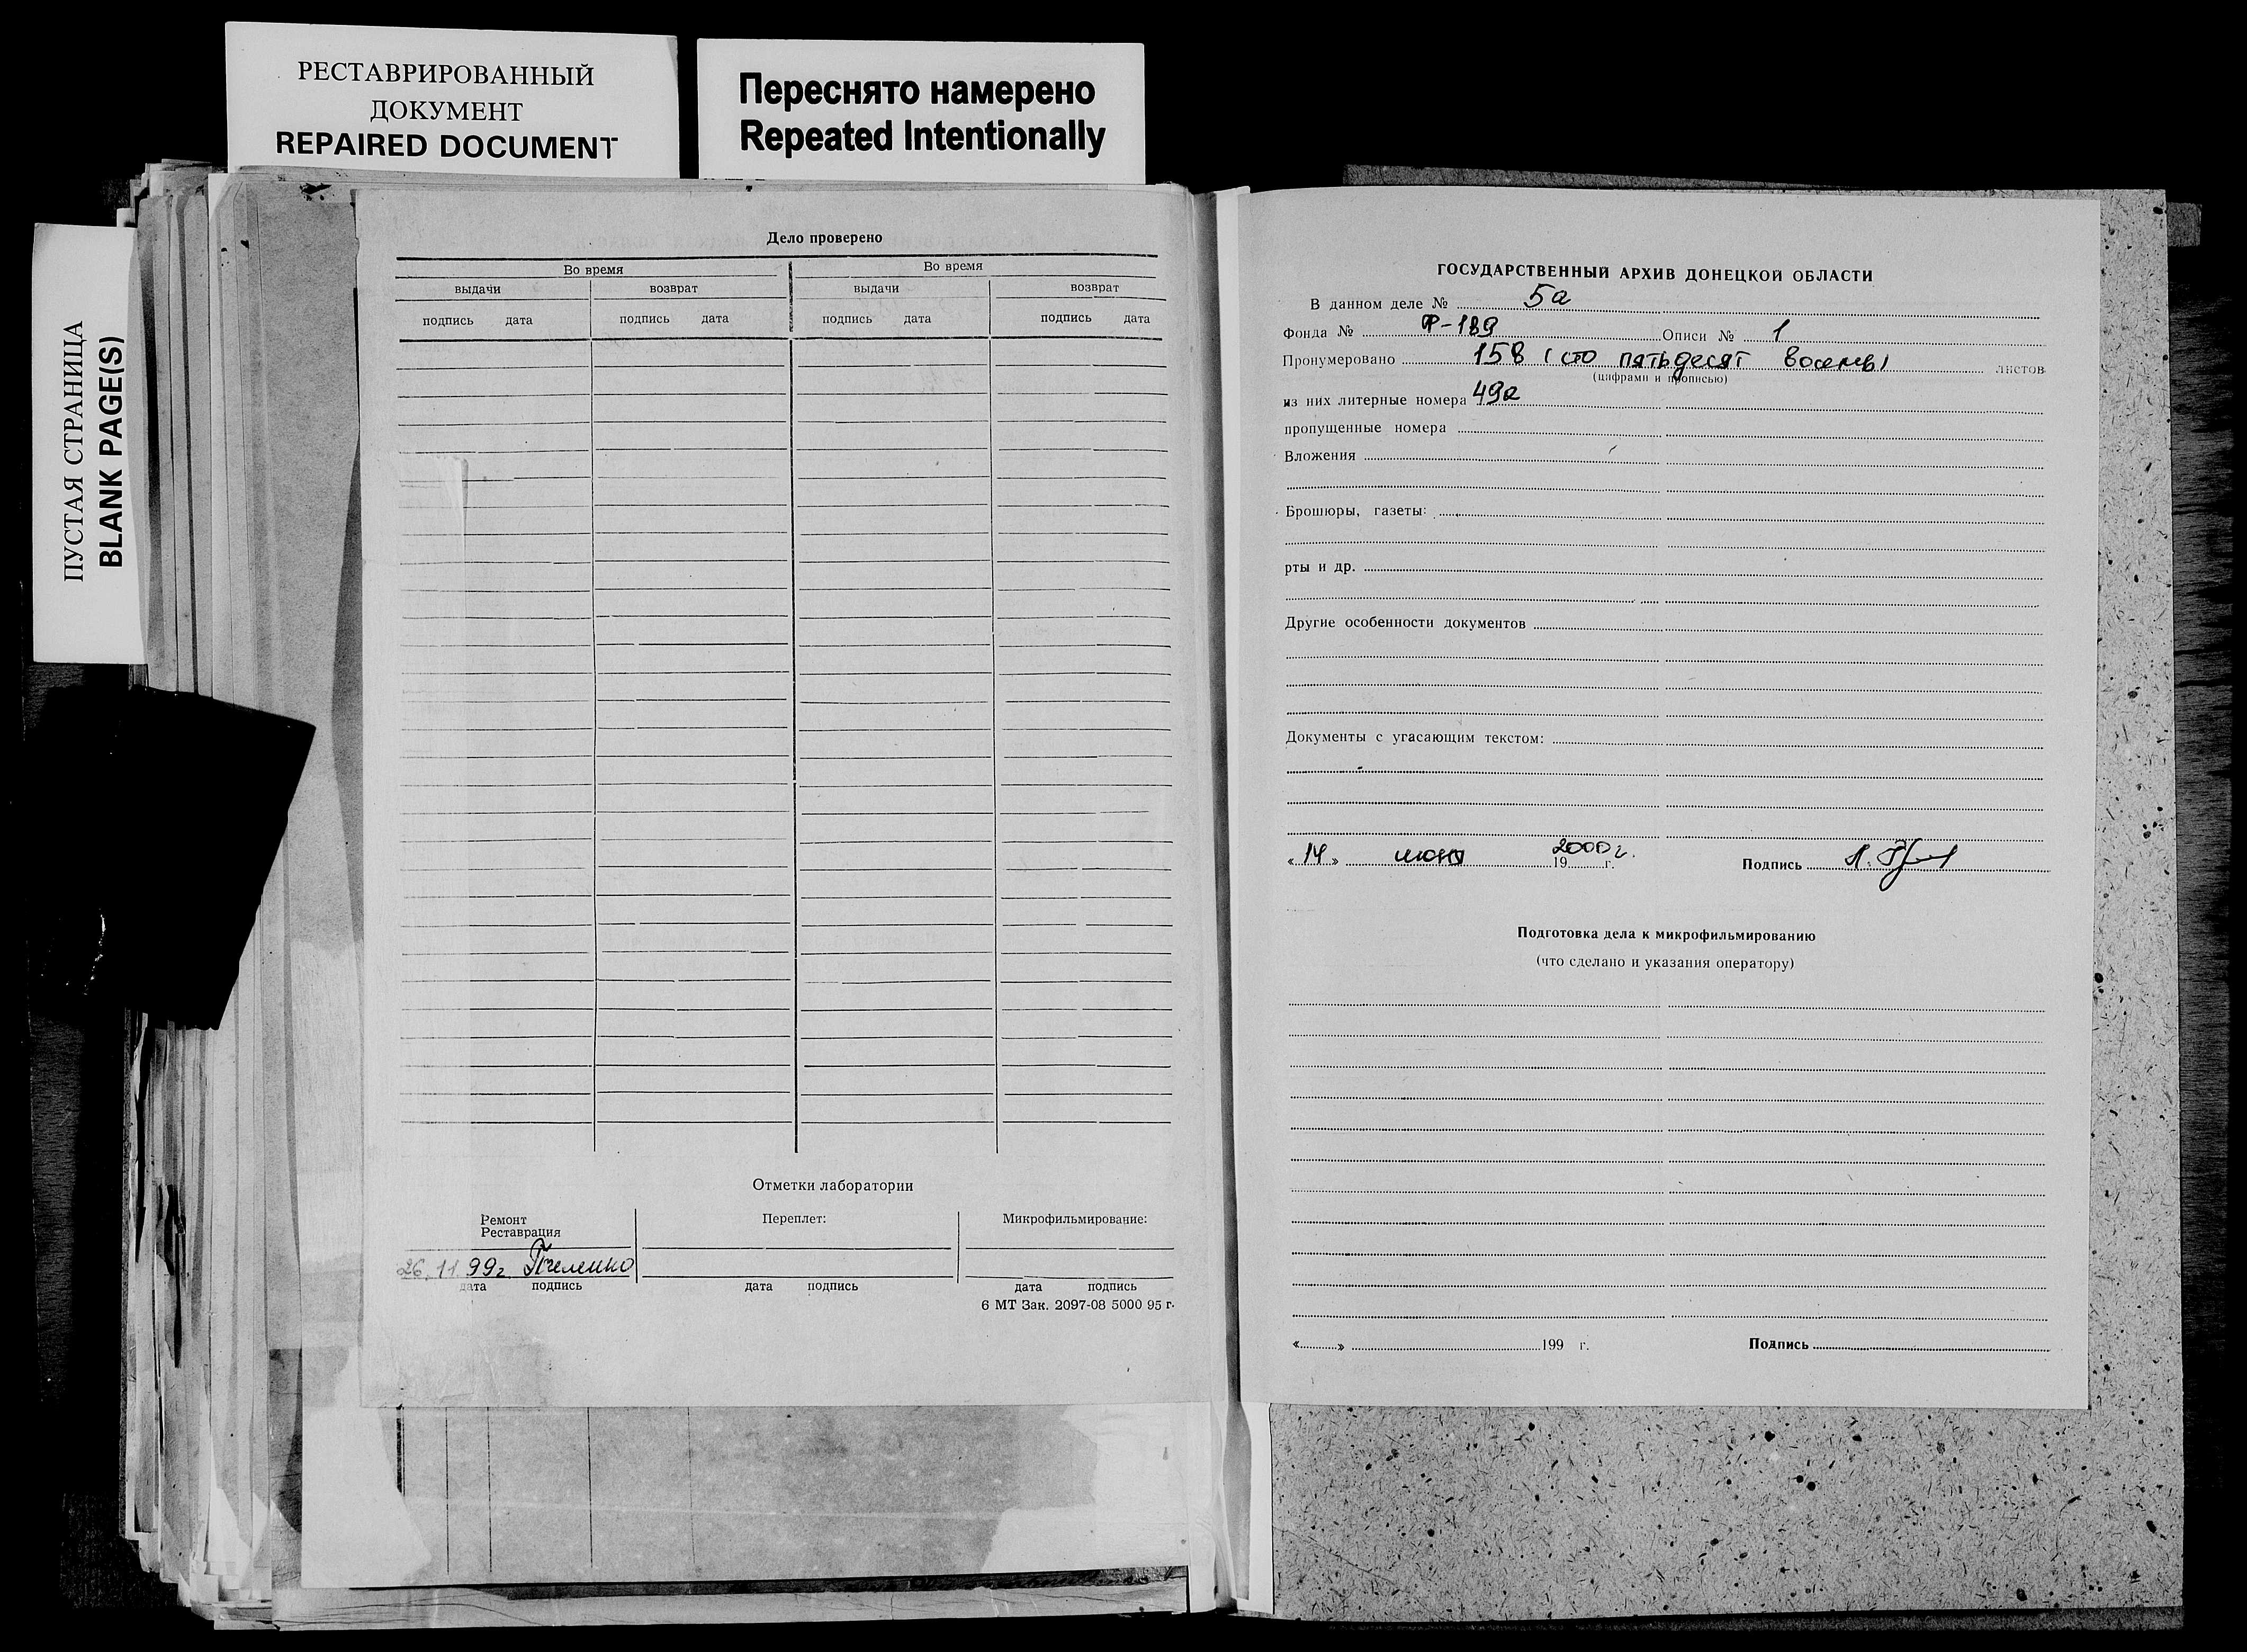 РЕСТАВРИРОВАННЫЙ
ДОКУМЕНТ
REPAIRED DOCUMENT
Переснято намерено
Repeated Intentionally
ПУСТАЯ СТРАНИЦА
BLANK PAGE(S)
Дело проверено
Во время Во время
выдачи возврат выдачи возврат
подпись дата подпись дата подпись дата подпись дата
Отметки лаборатории
Ремонт Переплет: Микрофильмирование:
Реставрация
26.11.99г
дата подпись дата подпись дата подпись
6 МТ Зак. 2097-08 5000 95 г.
ГОСУДАРСТВЕННЫЙ АРХИВ ДОНЕЦКОЙ ОБЛАСТИ
В данном деле № 5а
Фонда № Описи № 1
Пронумеровано 158 (сто пятьдесят восемь) листов
(цифрами и прописью)
из них литерные номера 49а
пропущенные номера
Вложения
Брошюры, газеты:
рты и др.
Другие особенности документов
Документы с угасающим текстом:
«14» 2000 г.
19 г. Подпись
Подготовка дела к микрофильмированию
(что сделано и указания оператору)
« » 199 г. Подпись